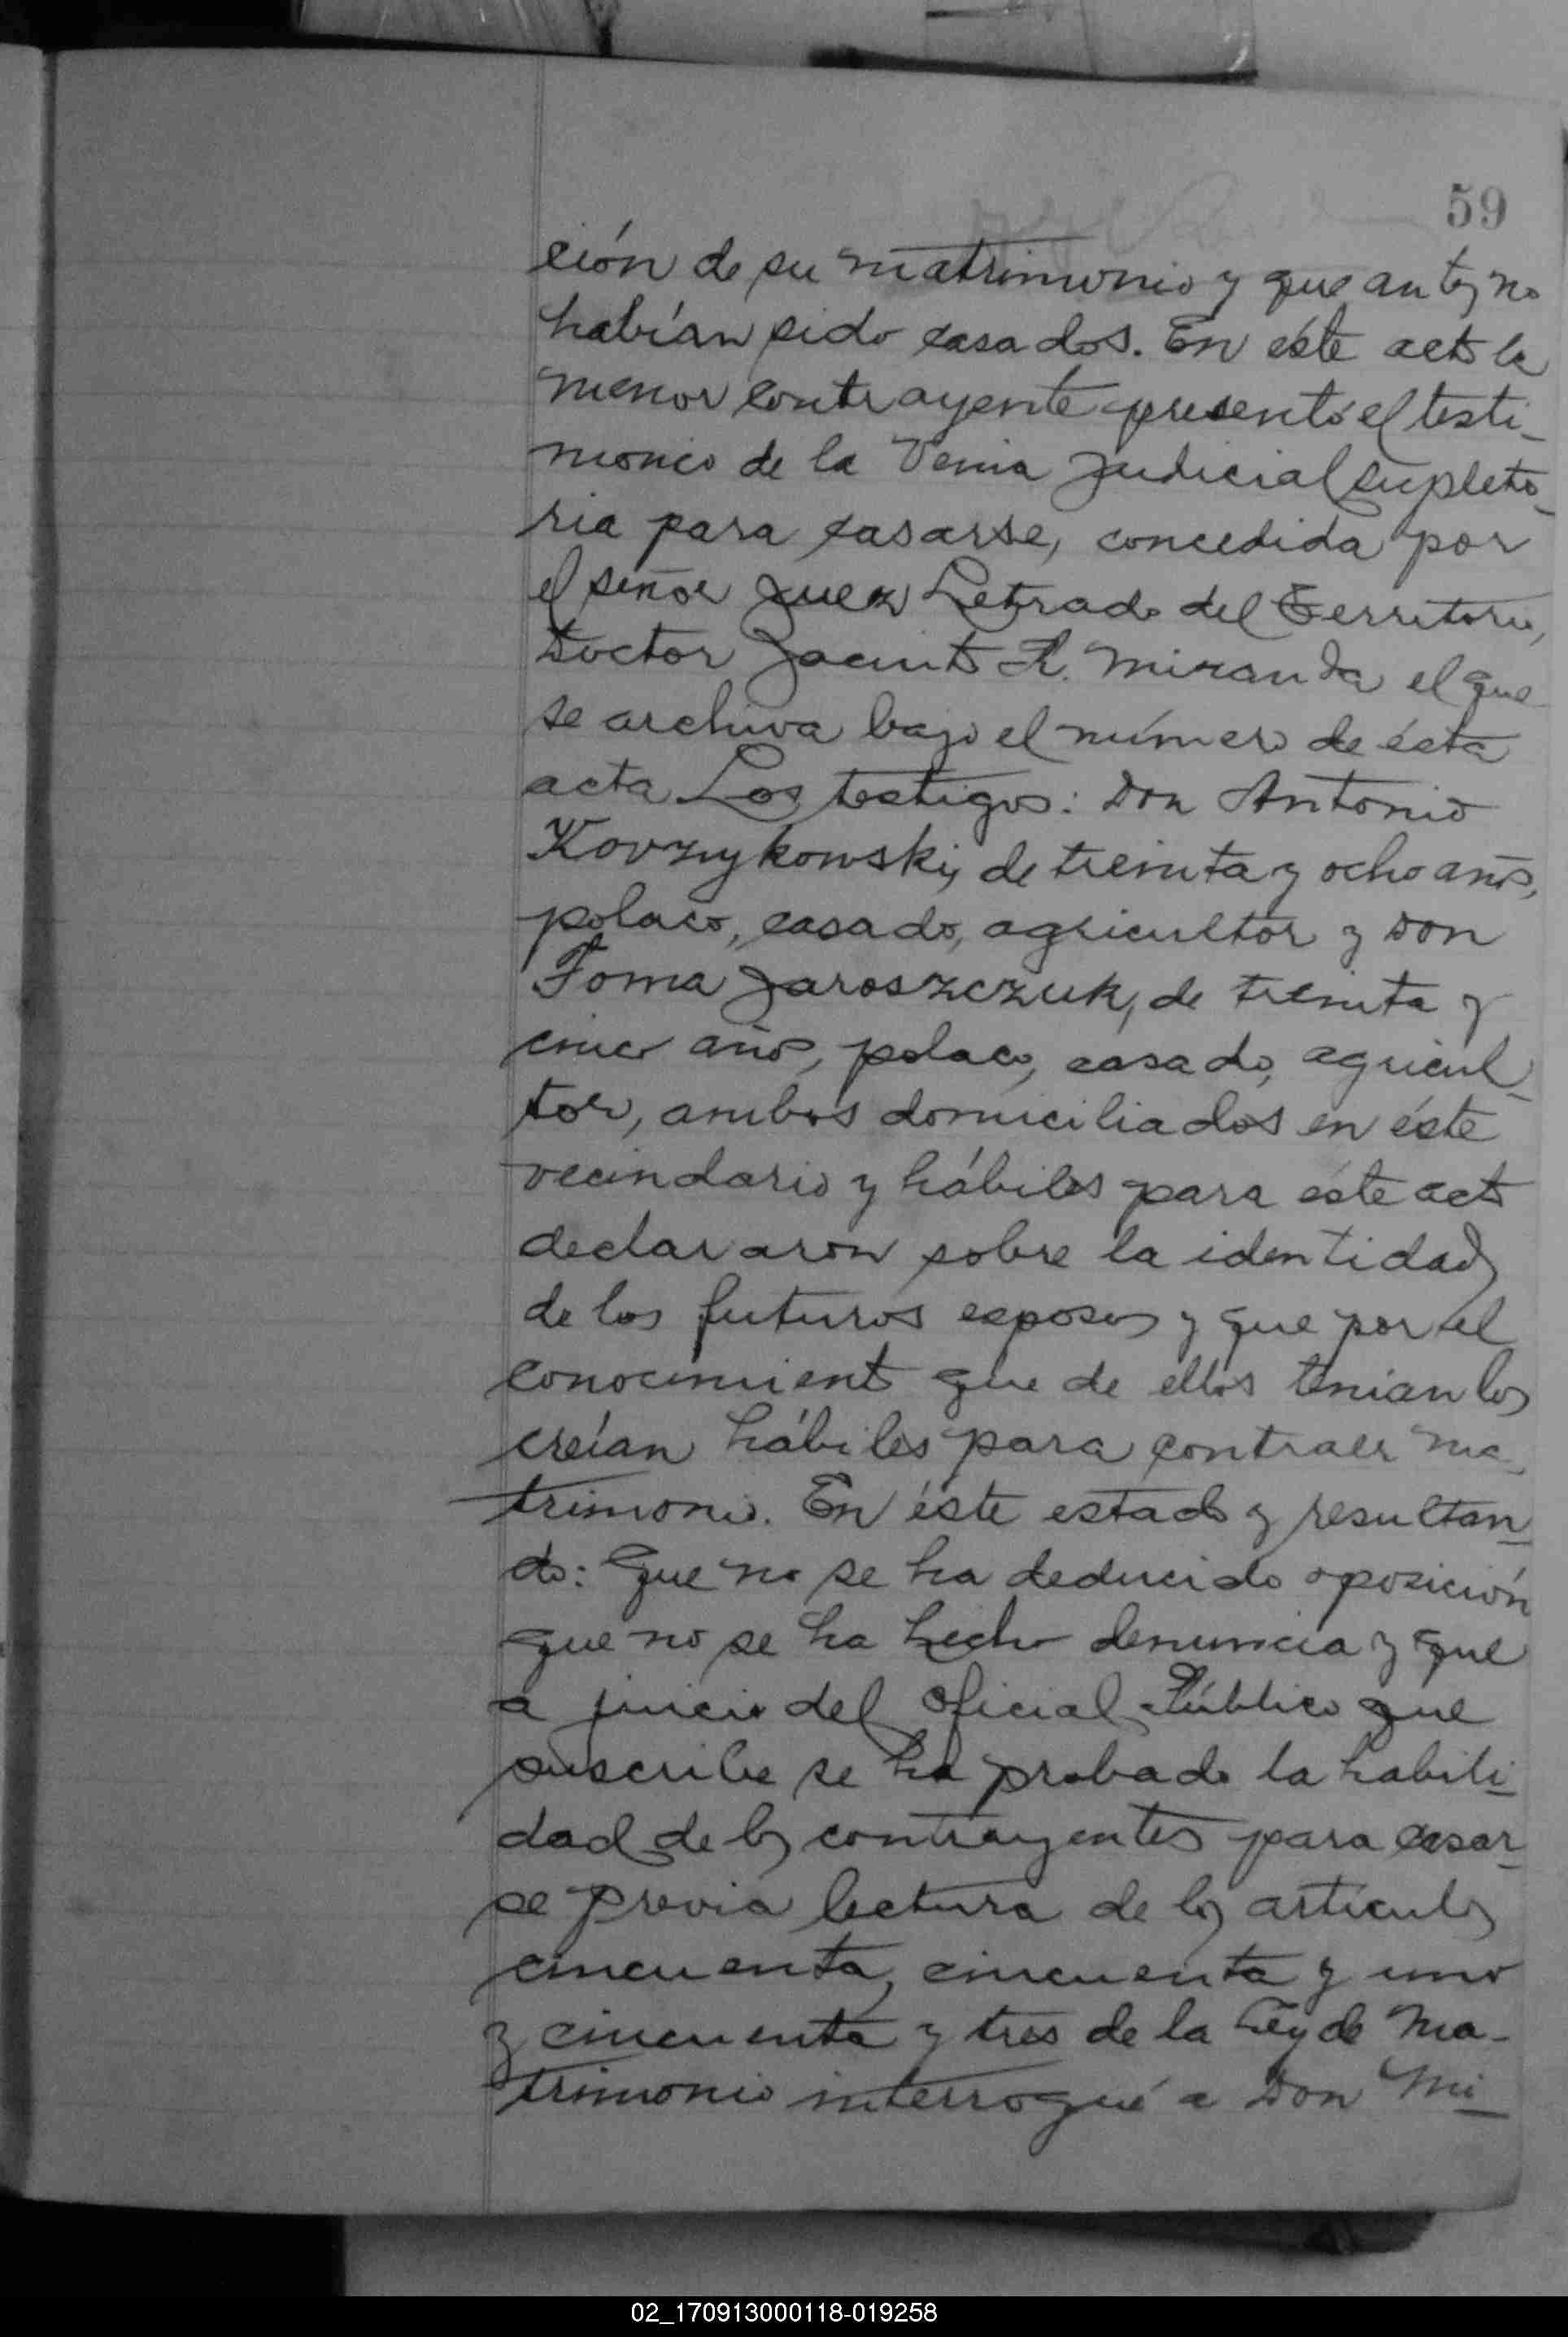 59
ción de su matrimonio y que antes no
habían sido casados. En éste acto la
menor contrayente presentó el testi-
monio de la Venia Judicial supleto-
ria para casarse, concedida por
el señor Juez Letrado del Territorio,
Doctor Jacinto R. Miranda el que
se archiva bajo el número de ésta
acta Los testigos: Don Antonio
Kovzykowski, de treinta y ocho años,
polaco, casado, agricultor y Don
Foma Jaroszczuk, de treinta y
cinco años, polaco, casado, agricul-
tor, ambos domiciliados en éste
vecindario y hábiles para éste acto
declararon sobre la identidad
de los futuros esposos y que por el
conocimiento que de ellos tenían los
creían hábiles para contraer ma-
trimonio. En éste estado y resultan-
do: Que no se ha deducido oposición
que no se ha hecho denuncia y que
a juicio del Oficial Público que
suscribe se ha probado la habili-
dad de los contrayentes para casar-
se previa lectura de los artículos
cincuenta, cincuenta y uno
y cincuenta y tres de la Ley de Ma-
trimonio interrogué a Don Mi-
02_170913000118-019258